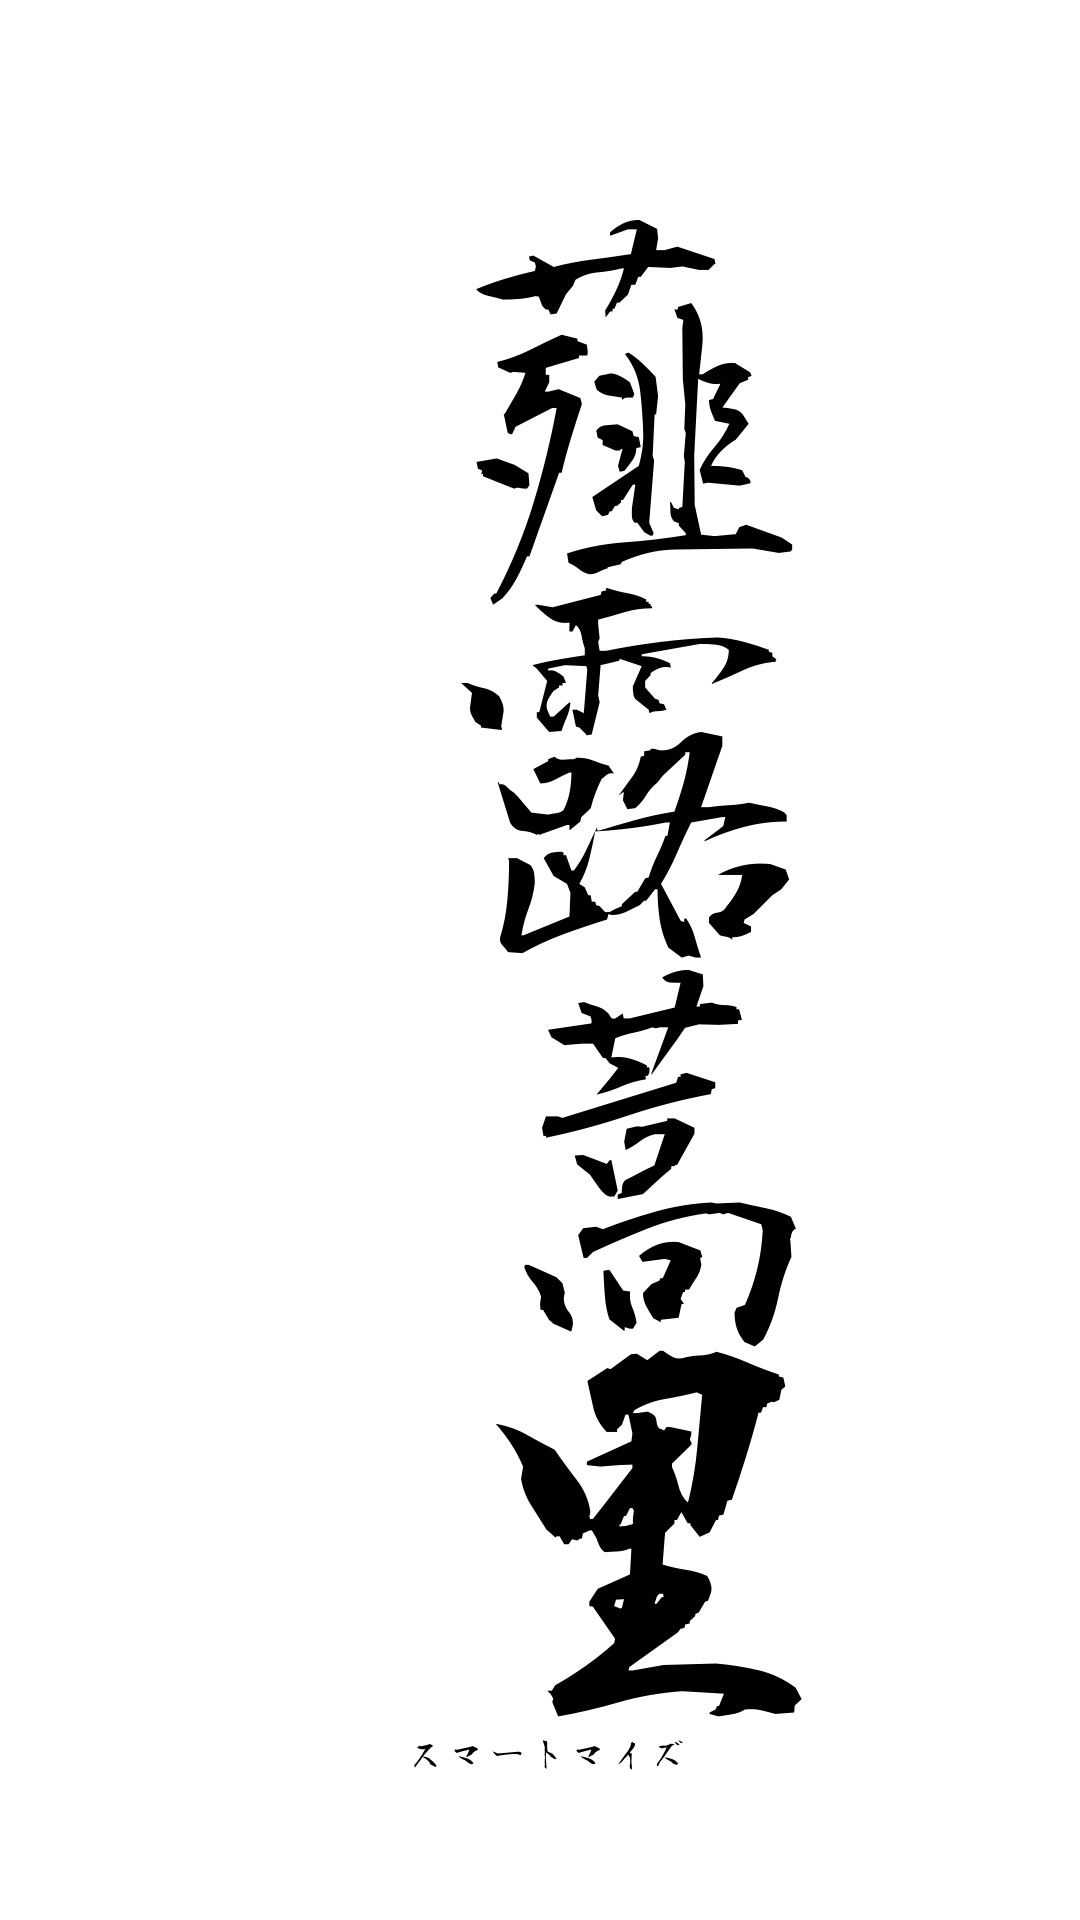 薤露蒿里
スマートマイズ